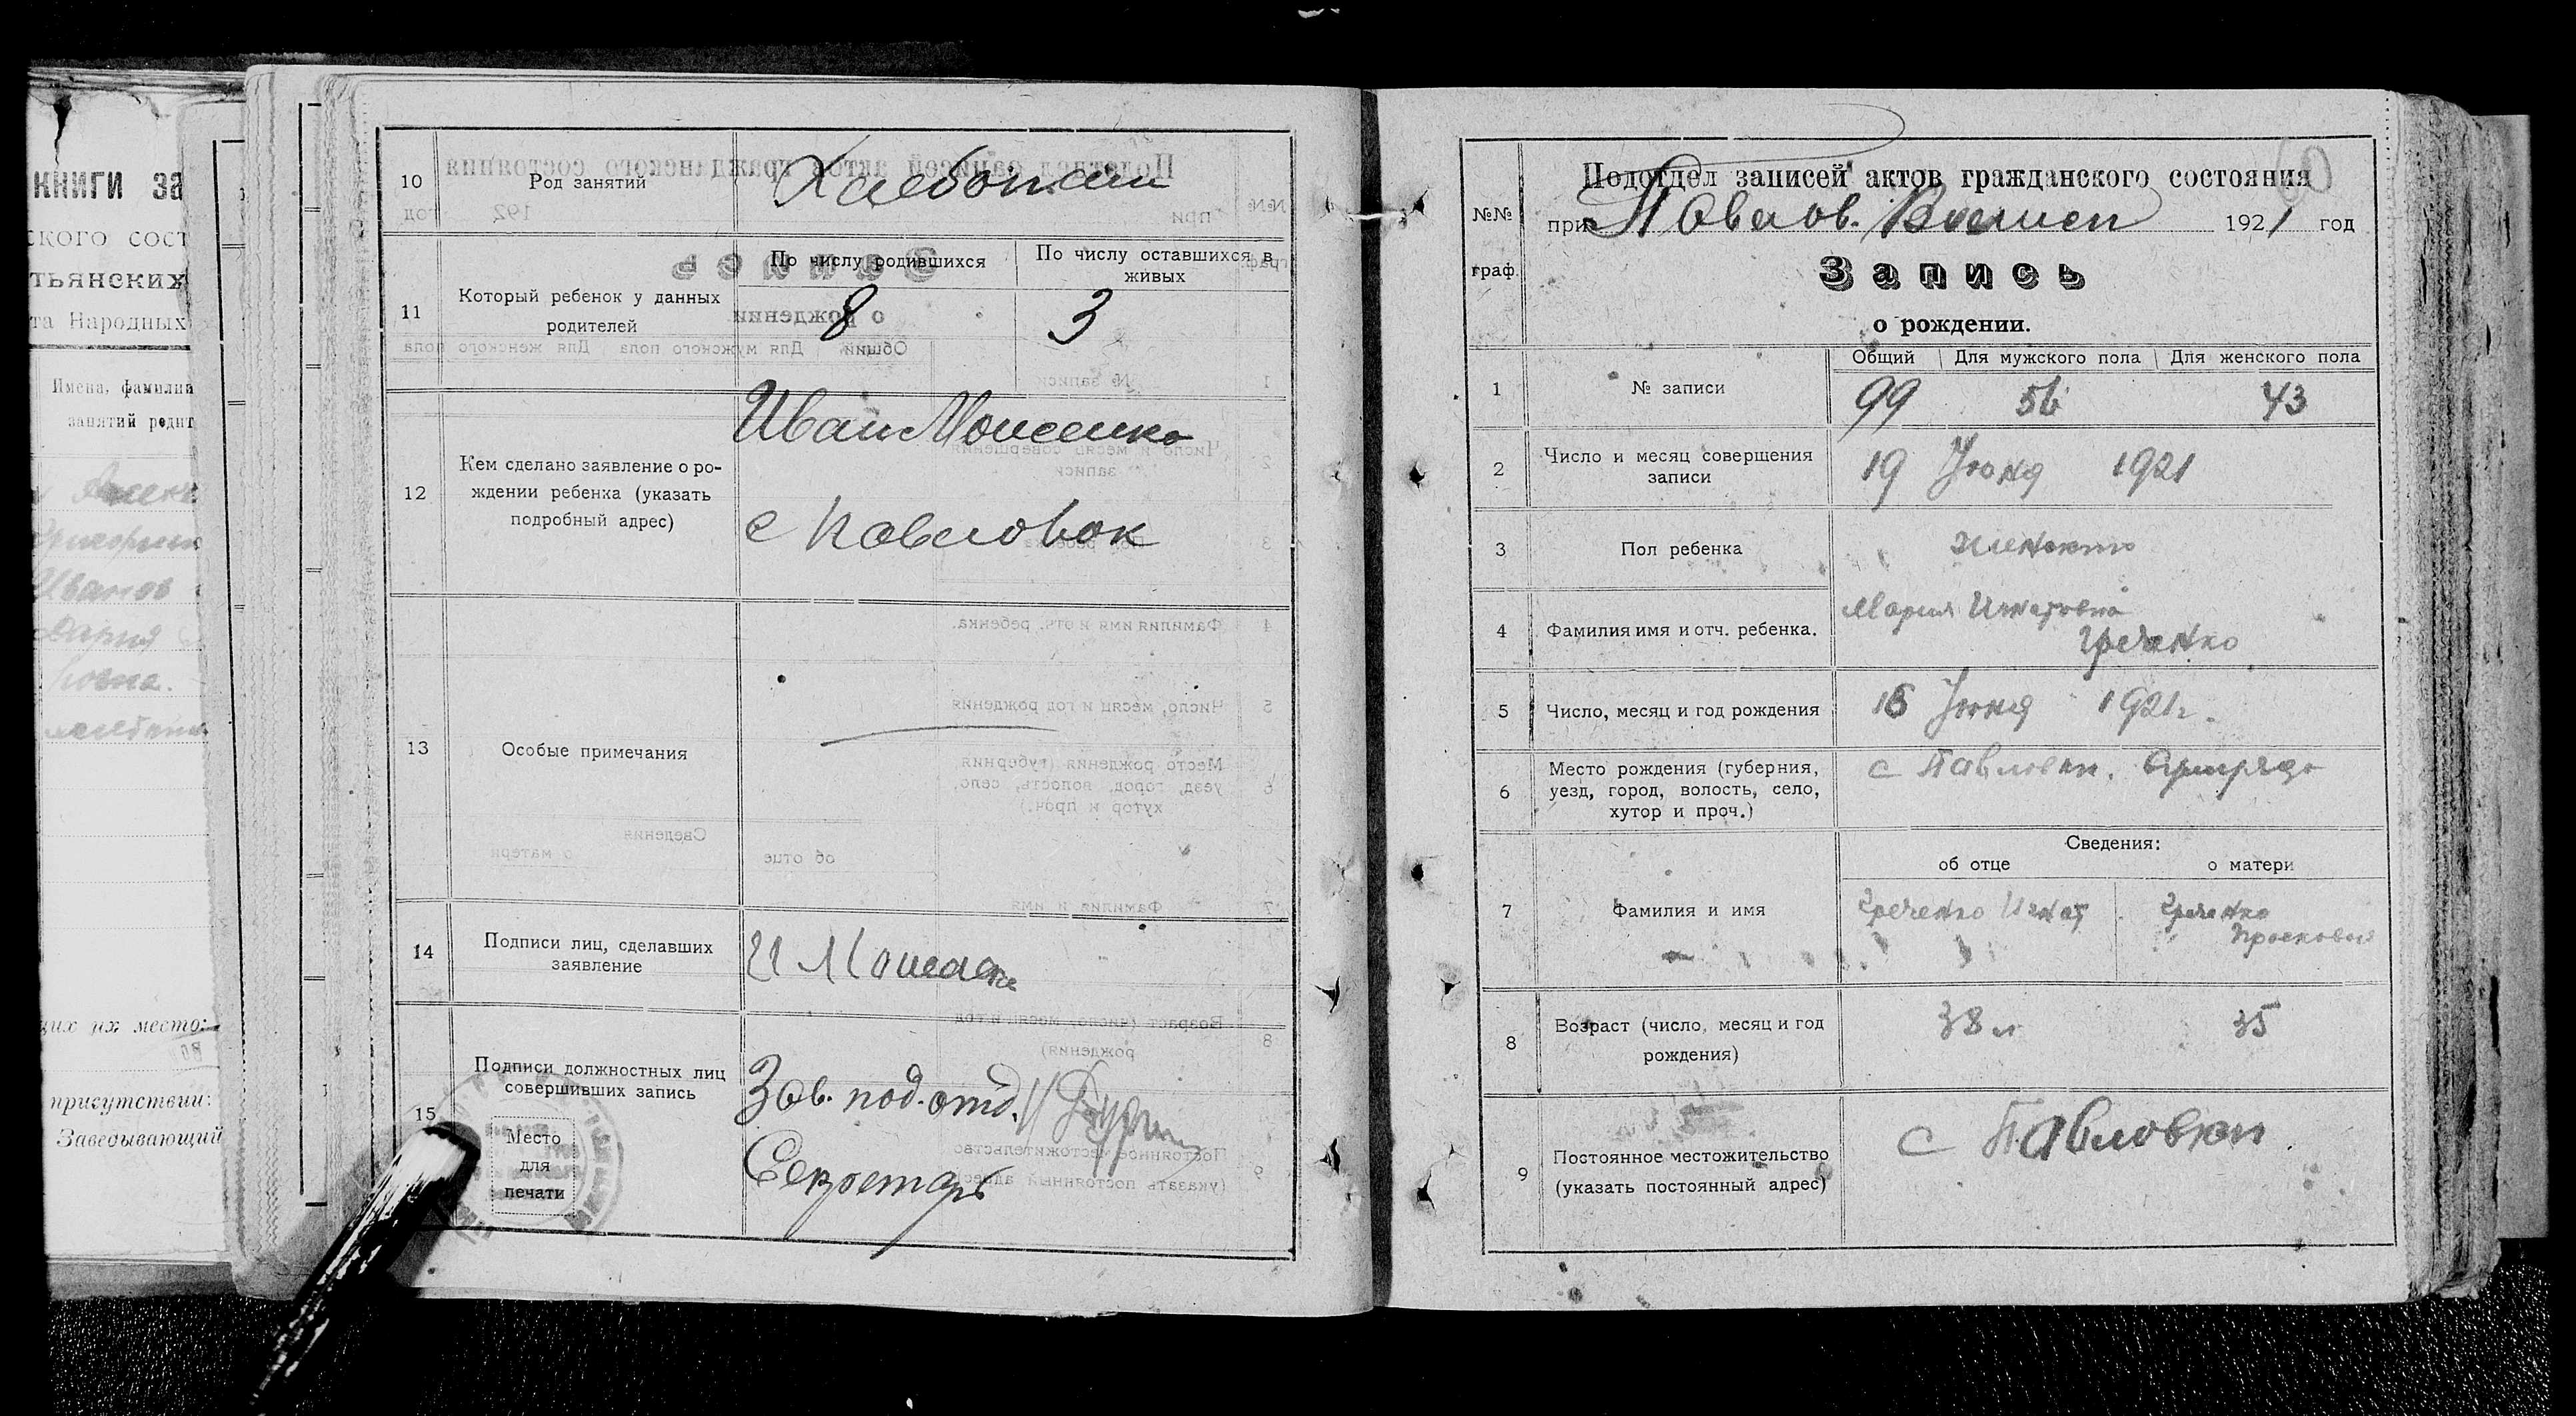 КНИГИ ЗА
ского сост
тьянских
та Народных
Имена, фамилиа
занятий родит
Иванов
Дария
их их место:
присутствии:
Заведывающий
10 Род занятий Хлебопаш
11 Который ребенок у данных родителей
По числу родившихся По числу оставшихся в живых
8 3
12 Кем сделано заявление о ро-
ждении ребенка (указать
подробный адрес)
Иван Моисеенко
с Павловок
13 Особые примечания
14 Подписи лиц, сделавших
заявление
И Моисеенко
15 Подписи должностных лиц
совершивших запись
Зав. под. отд.
Секретарь
Место
для
печати
Подотдел записей актов гражданского состояния
№№ граф.
при Павлов. Волисп 1921 год
Запись
о рождении.
Общий Для мужского пола Для женского пола
1 № записи 99 56 43
2 Число и месяц совершения
записи
19 Июня 1921
3 Пол ребенка женского
4 Фамилия имя и отч. ребенка.
Мария Игнатовна
Греченко
5 Число, месяц и год рождения 16 Июня 1921 г.
6 Место рождения (губерния,
уезд, город, волость, село,
хутор и проч.)
с Павловки.
Сведения:
об отце о матери
7 Фамилия и имя Греченко Игнат Греченко
Просковия
8 Возраст (число, месяц и год
рождения)
38 л 35
9 Постоянное местожительство
(указать постоянный адрес)
с Павловки